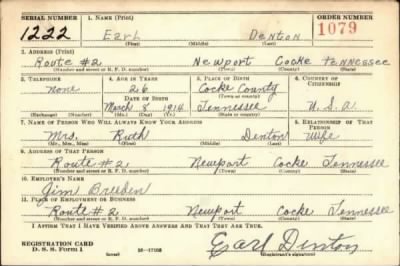 SERIAL NUMBER 1. NAME (Print) ORDER NUMBER
1222 Earl Denton 1079
(First) (Middle) (Last)
2. ADDRESS (Print)
Route #2 Newport Cocke Tennessee
(Number and street or R. F. D. number) (Town) (County) (State)
3. TELEPHONE 4. AGE IN YEARS 5. PLACE OF BIRTH 6. COUNTRY OF CITIZENSHIP
none 26 Cocke County
(Town or county)
DATE OF BIRTH
March 8 1914 Tennessee U.S.A.
(Exchange) (Number) (Mo.) (Day) (Yr.) (State or country)
7. NAME OF PERSON WHO WILL ALWAYS KNOW YOUR ADDRESS 8. RELATIONSHIP OF THAT PERSON
Mrs. Ruth Denton Wife
(Mr., Mrs., Miss) (First) (Middle) (Last)
9. ADDRESS OF THAT PERSON
Route #2 Newport Cocke Tennessee
(Number and street or R. F. D. number) (Town) (County) (State)
10. EMPLOYER'S NAME
Jim Breeden
11. PLACE OF EMPLOYMENT OR BUSINESS
Route #2 Newport Cocke Tennessee
(Number and street or R. F. D. number) (Town) (County) (State)
I AFFIRM THAT I HAVE VERIFIED ABOVE ANSWERS AND THAT THEY ARE TRUE.
REGISTRATION CARD
D. S. S. Form 1 (over) 16—17105 Earl Denton
(Registrant's signature)